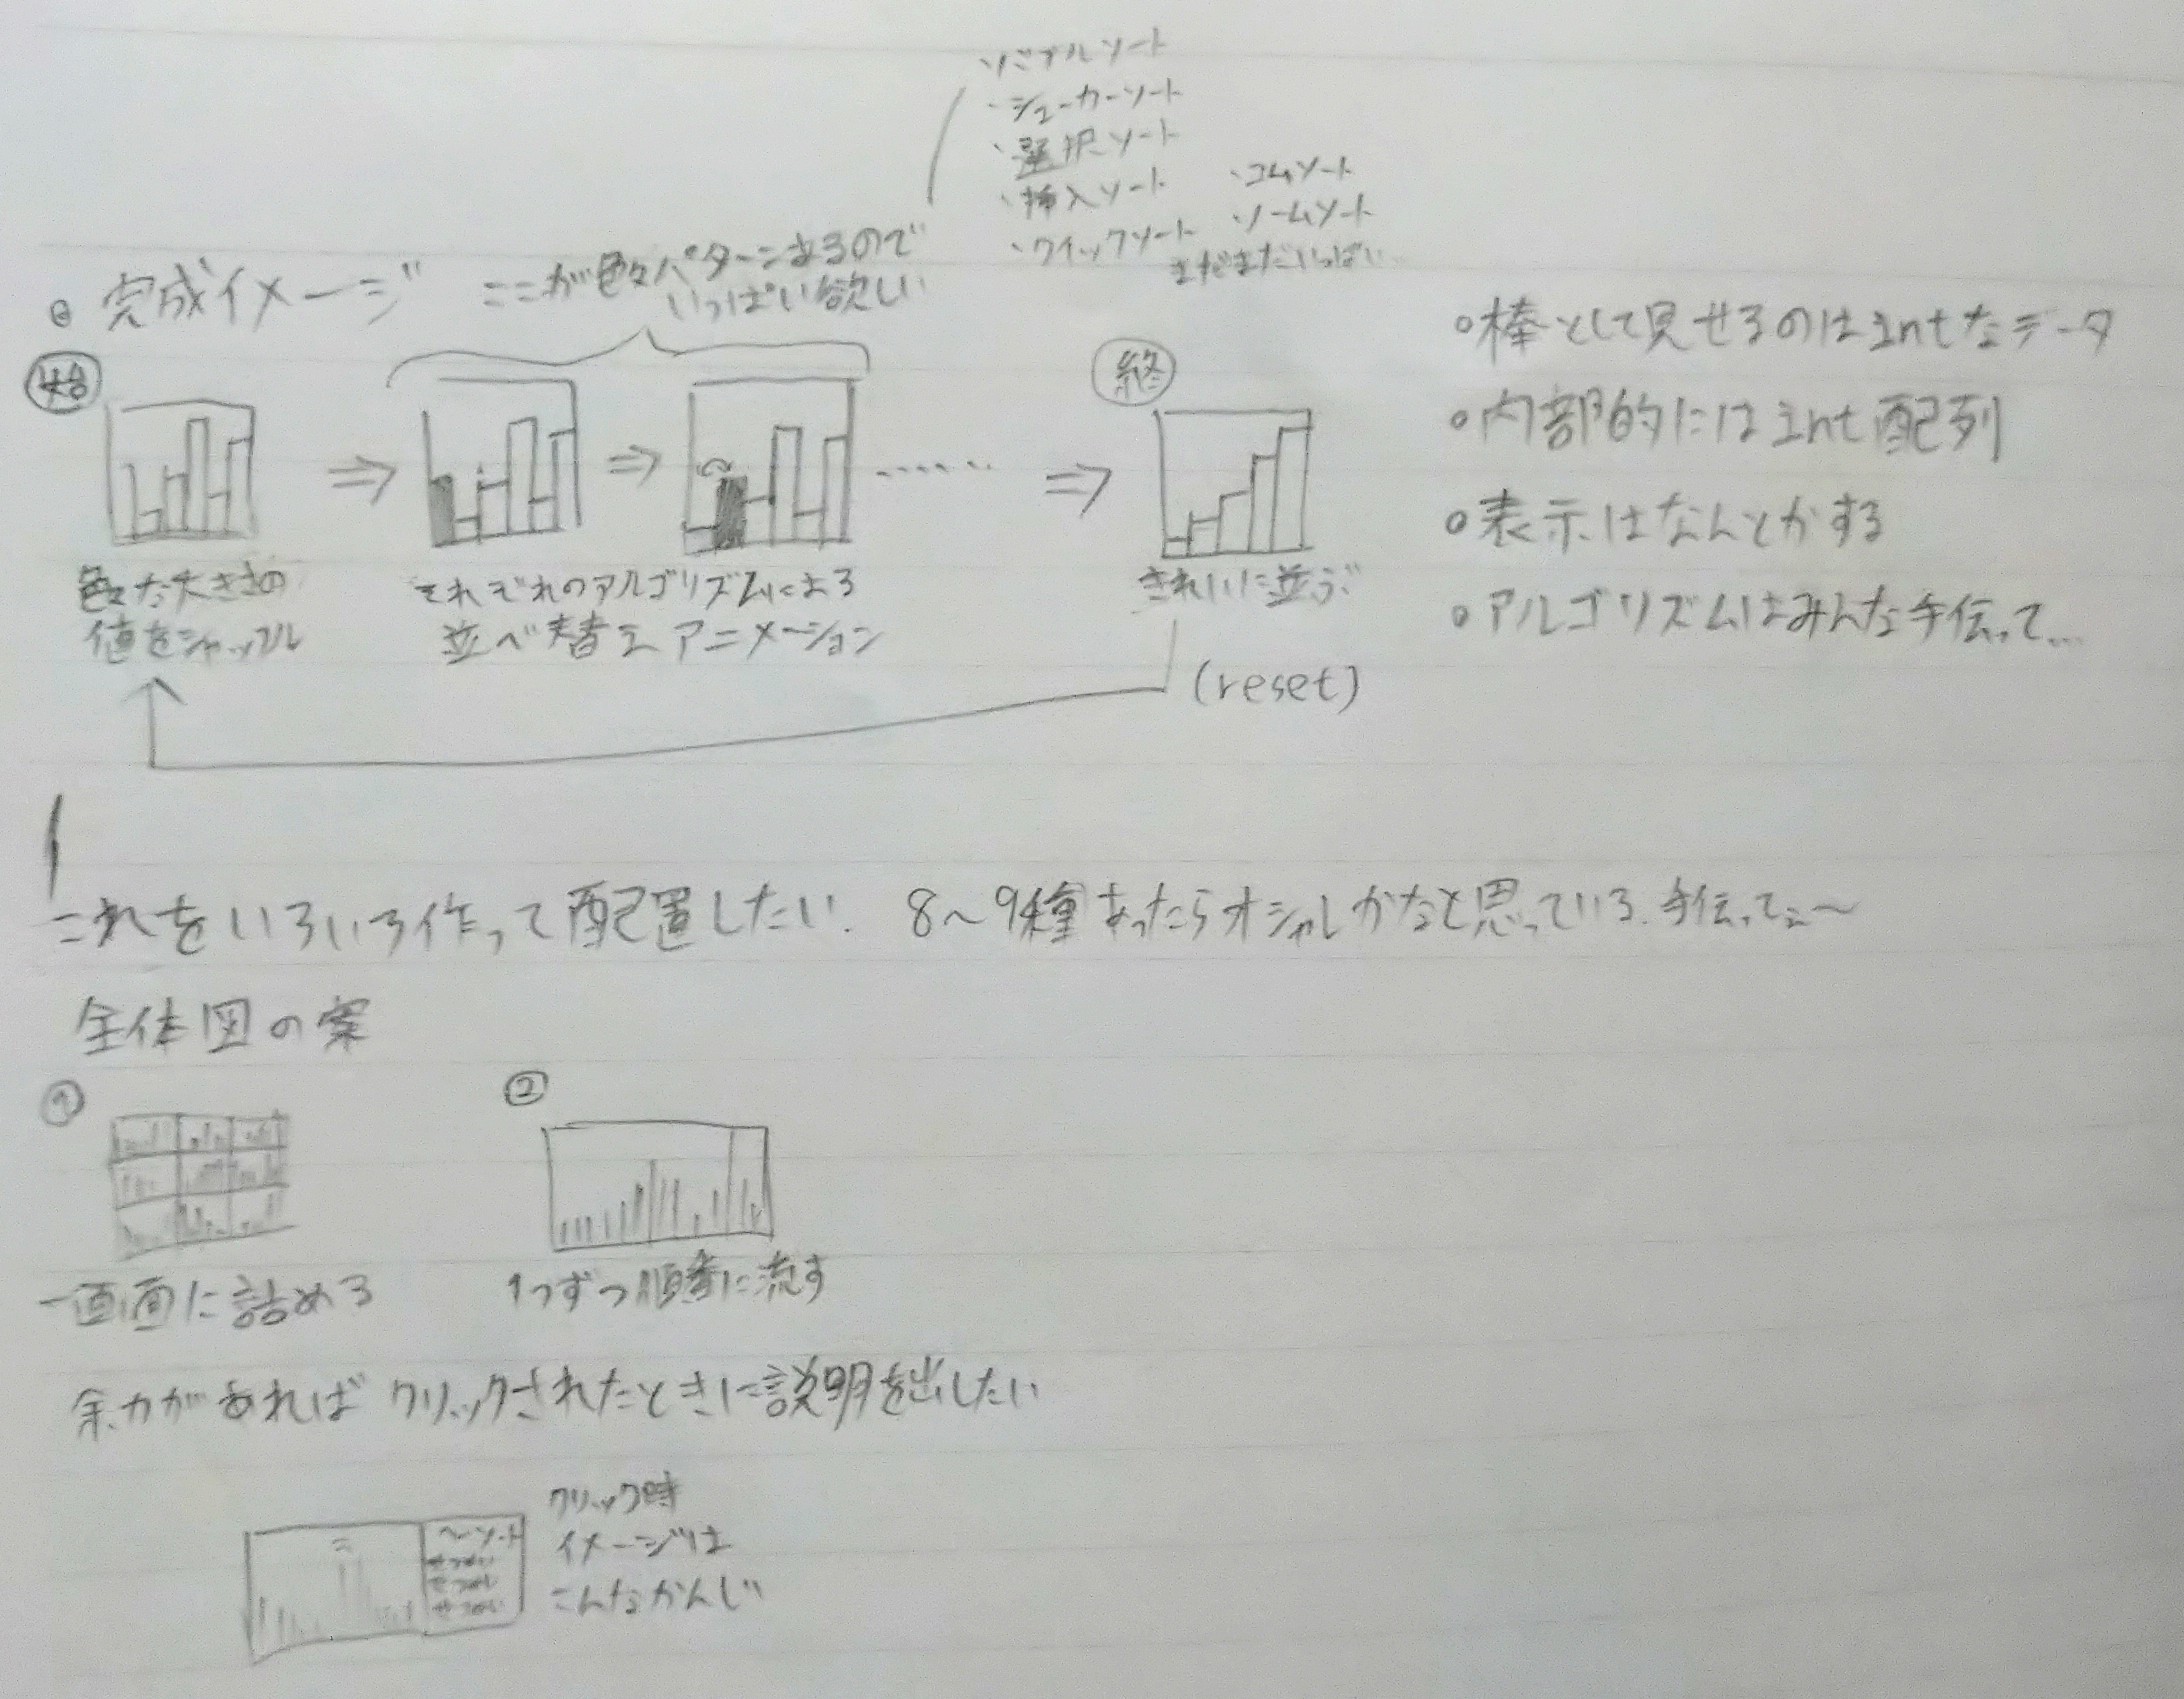 ・バブルソート
・シェーカーソート
・選択ソート
・挿入ソート
・クイックソート
・コムソート
・ノームソート
まだまだいっぱい…
完成イメージ
ここが色々パターンあるので
いっぱい欲しい
始
終
色々な大きさの
値をシャッフル
それぞれのアルゴリズムによる
並べ替えアニメーション
きれいに並ぶ
(reset)
○棒として見せるのはintなデータ
○内部的にはint配列
○表示はなんとかする
○アルゴリズムはみんな手伝って…
これをいろいろ作って配置したい. 8〜9種あったらオシャレかなと思っている. 手伝ってぇ〜
全体図の案
①
一画面に詰める
②
1つずつ順番に流す
余力があれば クリックされたときに説明を出したい
〜ソート
せつめい
せつめい
せつめい
クリック時
イメージは
こんなかんじ